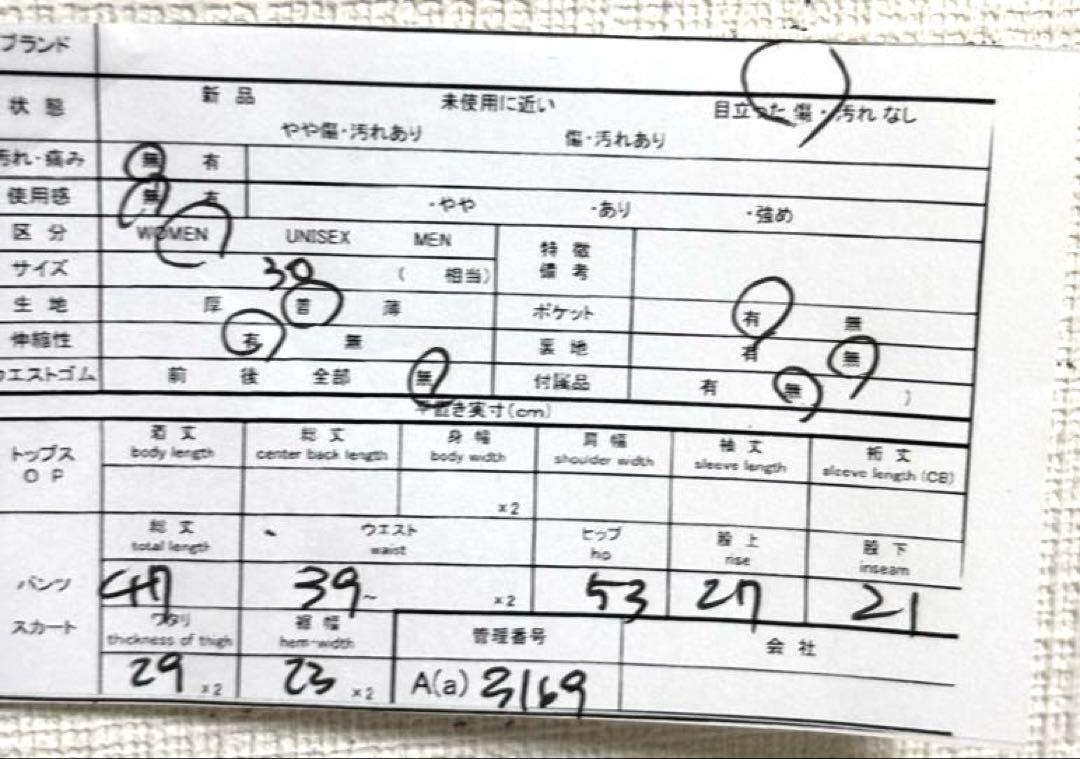 ブランド
状態 新品 未使用に近い 目立った傷・汚れなし
やや傷・汚れあり 傷・汚れあり
汚れ・痛み 無 有
使用感 無 有 ・やや ・あり ・強め
区分 WOMEN UNISEX MEN 特徴
備考
サイズ 38 ( 相当)
生地 厚 普 薄 ポケット 有 無
伸縮性 有 無 裏地 有 無
ウエストゴム 前 後 全部 無 付属品 有 無 )
平置き実寸(cm)
トップス 着丈 総丈 身幅 肩幅 袖丈 裄丈
OP body length center back length body width shoulder width sleeve length sleeve length (CB)
×2
総丈 ウエスト ヒップ 股上 股下
total length waist hip rise inseam
パンツ 47 39~ ×2 53 27 21
スカート ワタリ 裾幅 管理番号 会社
thickness of thigh hem-width
29 ×2 23 ×2 A(a) 3169